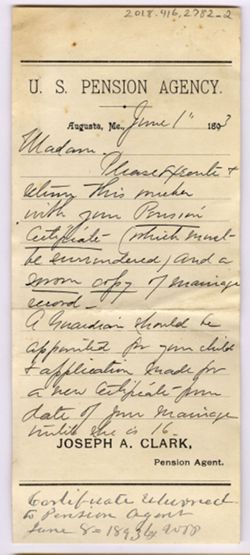 2018.416,2782-2
U. S. PENSION AGENCY.
Augusta, Me., June 1" 1893
Madam -
Please execute &
return this voucher
with your Pension
Certificate (which must
be surrendered) and a
sworn copy of marriage
record -
A Guardian should be
appointed for your child
& application made for
a new Certificate from
date of your marriage
until she is 16 -
JOSEPH A. CLARK,
Pension Agent.
Certificate returned
to Pension Agent
June 8 - 1893 by